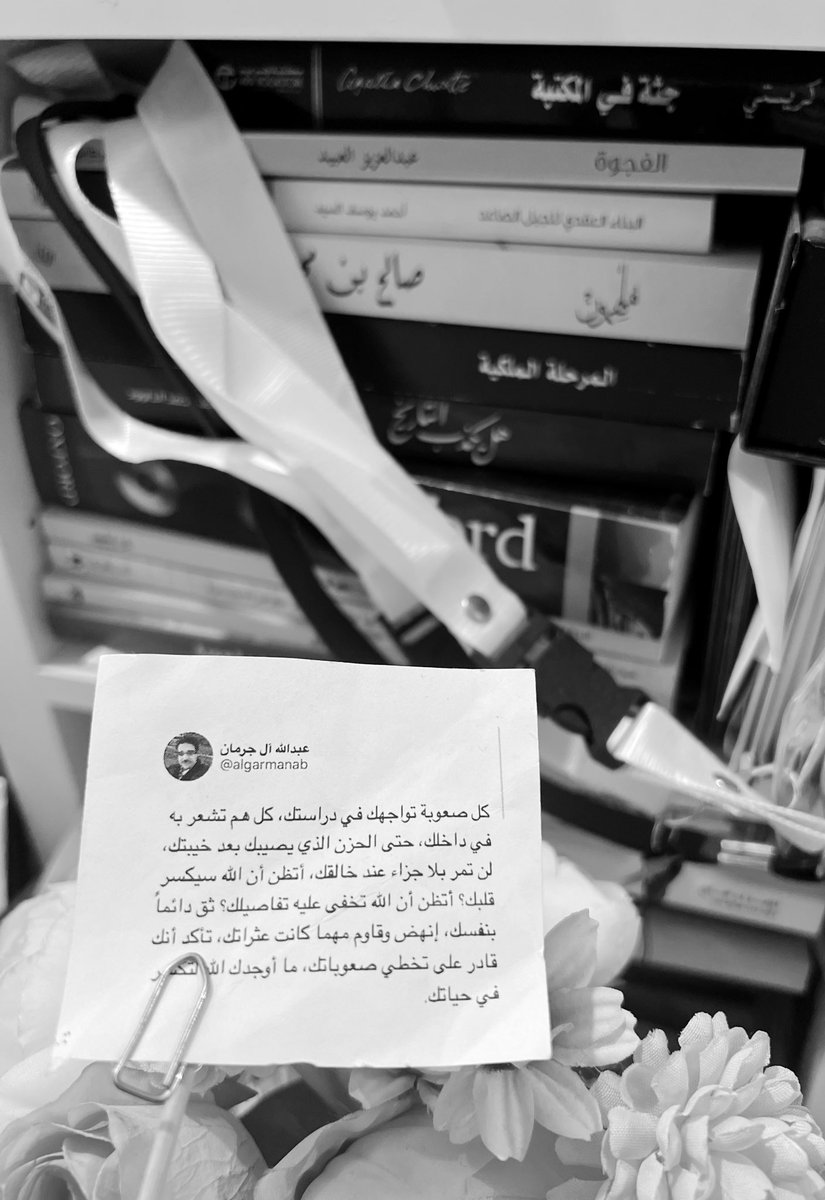 Agatha Christie جثة في المكتبة كريستي
عبدالعزيز العبيد الفجوة
أحمد يوسف السيد البناء العقدي للجيل الصاعد
صالح بن ملهمون
المرحلة الملكية
هل يكذب التاريخ
ord
عبدالله آل جرمان
@algarmanab
كل صعوبة تواجهك في دراستك، كل هم تشعر به
في داخلك، حتى الحزن الذي يصيبك بعد خيبتك،
لن تمر بلا جزاء عند خالقك، أتظن أن الله سيكسر
قلبك؟ أتظن أن الله تخفى عليه تفاصيلك؟ ثق دائماً
بنفسك، إنهض وقاوم مهما كانت عثراتك، تأكد أنك
قادر على تخطي صعوباتك، ما أوجدك الله لتكسر
في حياتك.